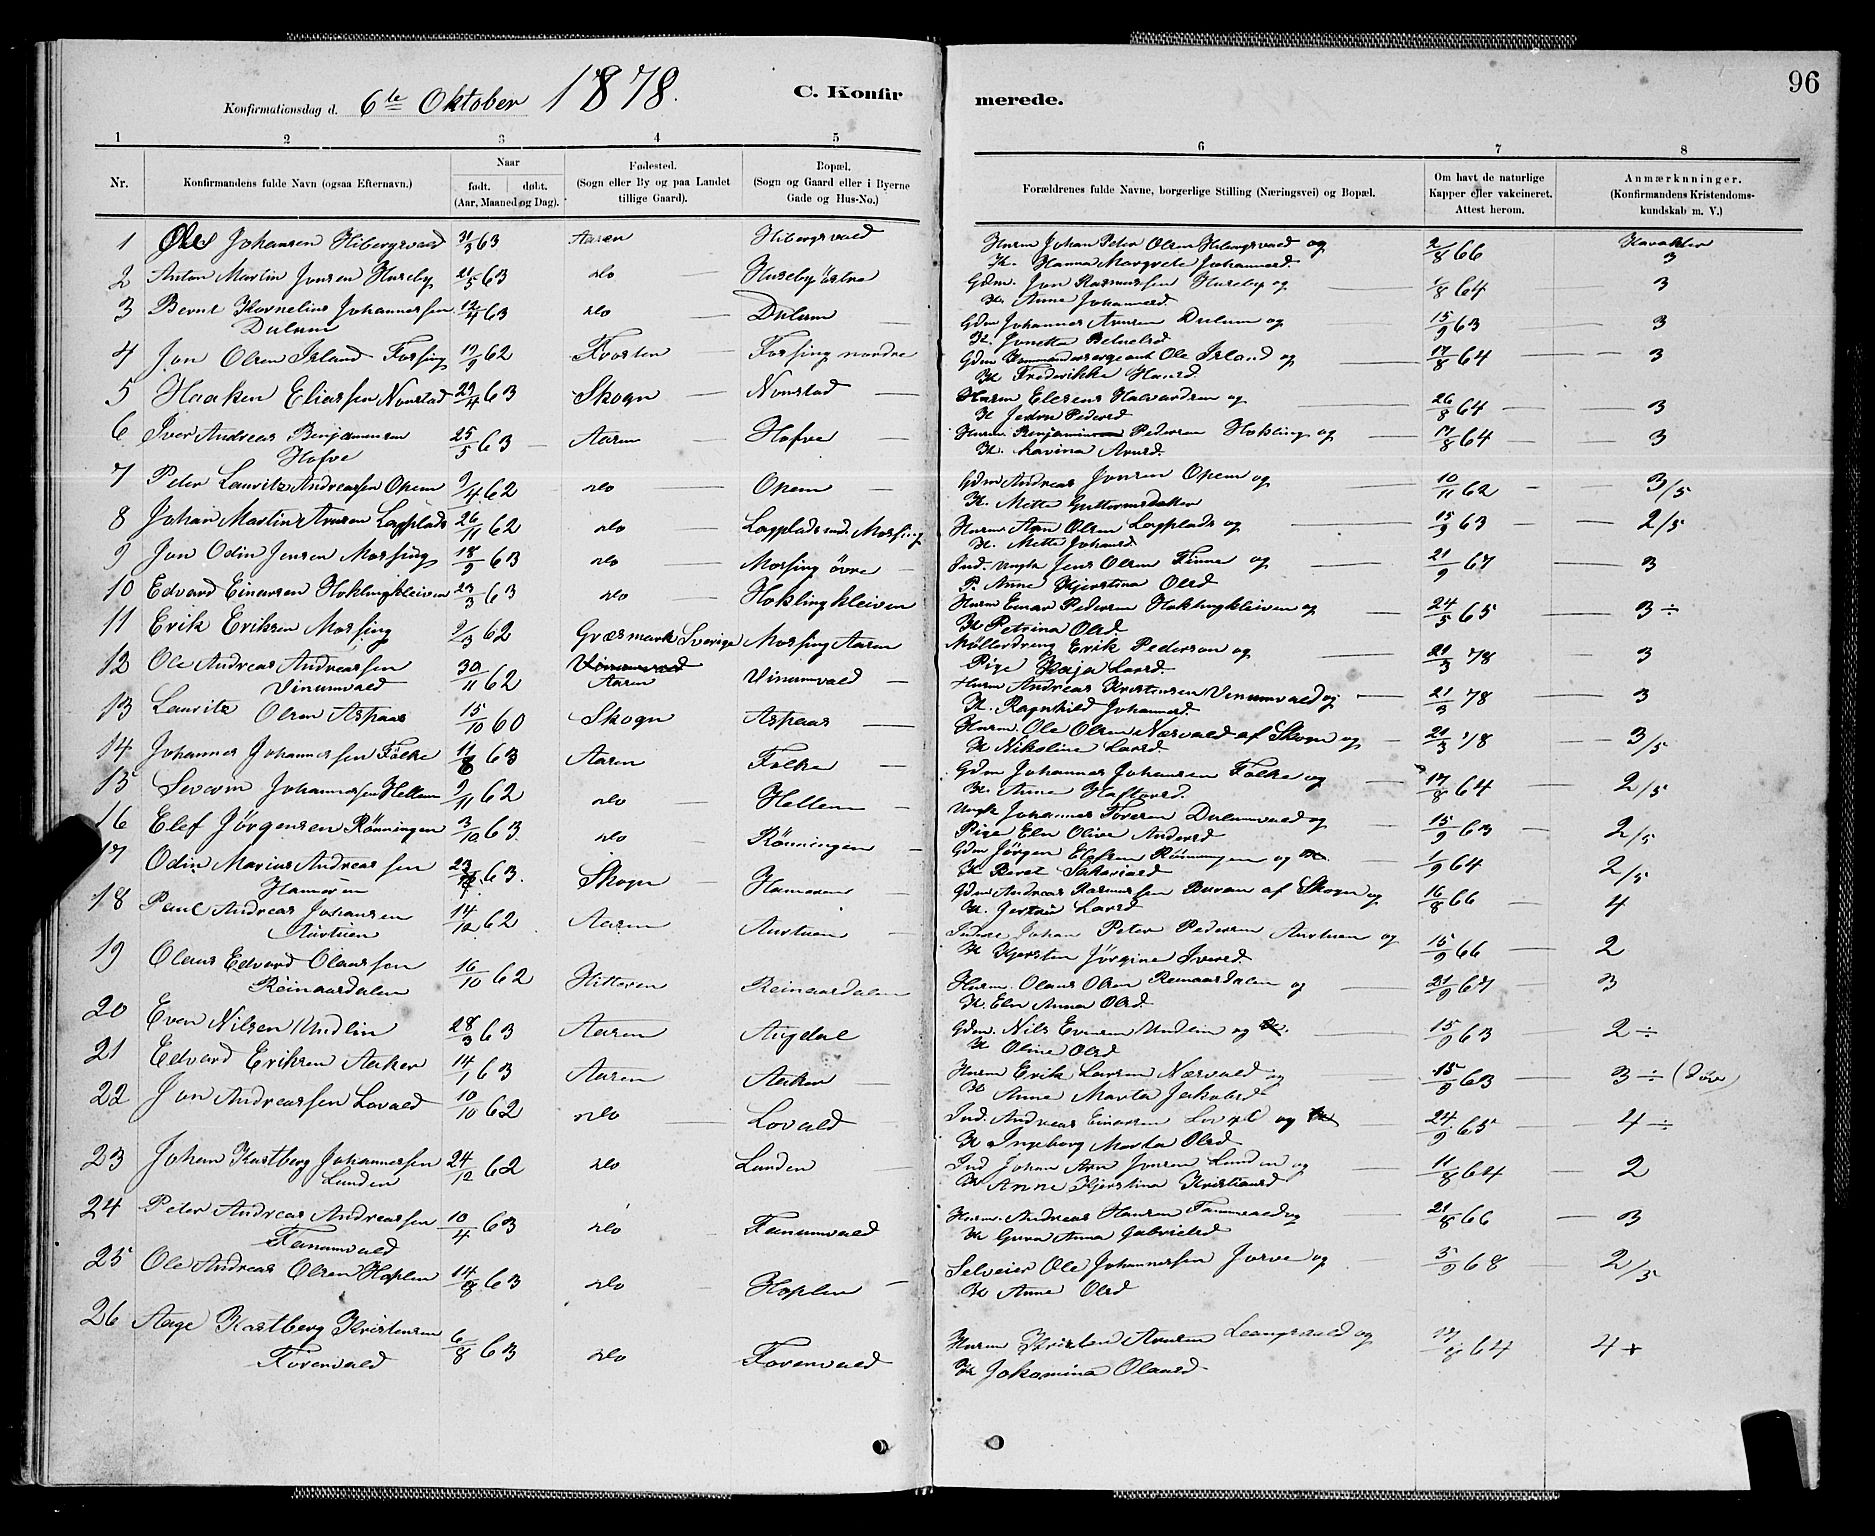 Konfirmationsdag d. 6te Oktober 1878. C. Konfir
merede. 96
1 2 3 4 5 6 7 8
Nr. Konfirmandens fulde Navn (ogsaa Efternavn.) Naar født. døbt. (Aar, Maaned og Dag). Fødested. (Sogn eller By og paa Landet tillige Gaard). Bopæl. (Sogn og Gaard eller i Byerne Gade og Hus-No.) Forældrenes fulde Navne, borgerlige Stilling (Næringsvei) og Bopæl. Om havt de naturlige Kapper eller vakcineret. Attest herom. Anmærknninger. (Konfirmandens Kristendoms- kundskab m. V.)
1 Ole Johansen Hibergsvald 31/3 63 Aasen Hibergsvald Husm Johan Peter Olsen Hibergsvald og 2/8 66 Karakter
K. Hanna Margrete Johannesd. 3
2 Anton Martin Jonsen Huseby 21/5 63 do Huseby östre Gdm. Jon Rasmussen Huseby og 1/8 64 3
K. Anne Johannesd.
3 Bernt Kornelius Johannessen 12/4 63 do Dulum Gdm Johannes Arnsen Dulum og 15/9 63 3
Dulum K. Jonetta
4 Jon Olsen Island Forsing 19/9 62 Frosten Forsing nordre Gdm Kommandersergeant Ole Island og 17/8 64 3
K Frederikke Hansd.
5 Haaken Eliassen Nonstad 29/4 63 Skogn Nonstad Husm Halvardsen og 26/8 64 3
K Pedersd
6 Iver Andreas Benjaminsen 25/5 63 Aasen Hofve Husm. Benjamin Pedersen Hokling og 17/8 64 3
Hofve K. Lavina Arnsd.
7 Peter Lauritz Andreassen Opem 9/4 62 do Opem Gdm Andreas Jonsen Opem og 10/11 62 3/5
K. Mette Guttormsdatter
8 Johan Martin Arnsen Lopplads 26/11 62 do Lopplads und. Mossing Husm Arn Olsen Lopplads og 15/9 63 2/5
K. Mette Johansd
9 Jon Odin Jensen Mossing 18/9 63 do Mossing övre Ind. Ungk Jens Olsen Finne og 21/9 67 3
P. Anne Kjerstina Olsd
10 Edvard Einarsen Hoklingkleiven 23/3 63 do Hoklingkleiven Husm Einar Pedersen Hoklingkleiven og 24/5 65 3 ÷
K Petrina Olsd.
11 Erik Eriksen Mossing 9/3 62 Græsmark Sverige Mossing Aasen Mölledreng Erik Pederson og 21/3 78 3
Pige Kaja Larsd.
12 Ole Andreas Andreassen 30/11 62 Vinumvald Vinumvald Husm Andreas Kristensen Vinumvald og 21/3 78 3
Vinumvald Aasen K. Ragnhild Johannesd.
13 Lauritz Olsen Aspaas 15/10 60 Skogn Aspaas Husm. Ole Olsen Næsvald af Skogn og 21/3 78 3/5
K Nikoline Larsd.
14 Johannes Johannessen Fölke 11/8 63 Aasen Folke Gdm Johannes Johansen Folke og 17/8 64 2/5
K. Anne Haftorsd.
15 Johannessen Hellem 9/11 62 do Hellem Ungk Johannes Toresen Dulumvald og 15/9 63 2/5
Pige Elen Olive Andersd
16 Elef Jörgensen Rönningen 3/10 63 do Rönningen Gdm Jörgen Elefsen Rönningen og K. 1/9 64 2/5
K Beret Sakariasd
17 Odin Marius Andreassen 23/ 63. Skogn Hameren Gdm Andreas Rasmussen Buran af Skogn og 16/8 66 4
Hameren K. Larsd
18 Paul Andreas Johansen 14/12 62 Aasen Austuen Johan Peter Pedersen Austuen og 15/9 66 2
Austuen K Kjersten Jörgine Iversd.
19 Olaus Edvard Olaussen 16/10 62 Hitteren Reinaardalen Husm. Olaus Olsen Reinaardalen og 21/9 67 3
Reinaardalen K. Elen Anna Olsd
20 Even Nilsen Undlin 28/3 63 Aasen Augdal Gdm. Nils Evensen Undlin og K. 15/9 63 2 ÷
K Oline Olsd
21 Edvard Eriksen Aaker 14/1 63 Aasen Aaker Husm Erik Larsen Næsvald og 15/9 63 3 ÷ (döv)
K Anne Marta Jakobsd
22 Jon Andreassen Lovald 10/10 62 do Lovald Ind. Andreas Einarsen Lovald og K 24/9 65 4 ÷
K Ingeborg Marta Olsd
23 Johan Kastberg Johannessen 24/12 62 do Lunden Ind Johan Arn Jonsen Lunden og 11/8 64 2
Lunden K Anne Kjerstina Kristiansd
24 Peter Andreas Andreassen 10/4 63 do Fanumvald Husm. Andreas Hansen Fanumvald og 21/8 66 3
Fanumvald K Anna Gabrielsd
25 Ole Andreas Olsen Hoplen 14/8 63 do Hoplen Selveier Ole Johannessen Jorve og 5/9 68 2/5
K Anne Olsd
26 Aage Kastberg Kristensen 6/8 63 do Forenvald Husm Kristen Arnsen og 17/8 64 4 +
Forenvald K Jakomina Olausd